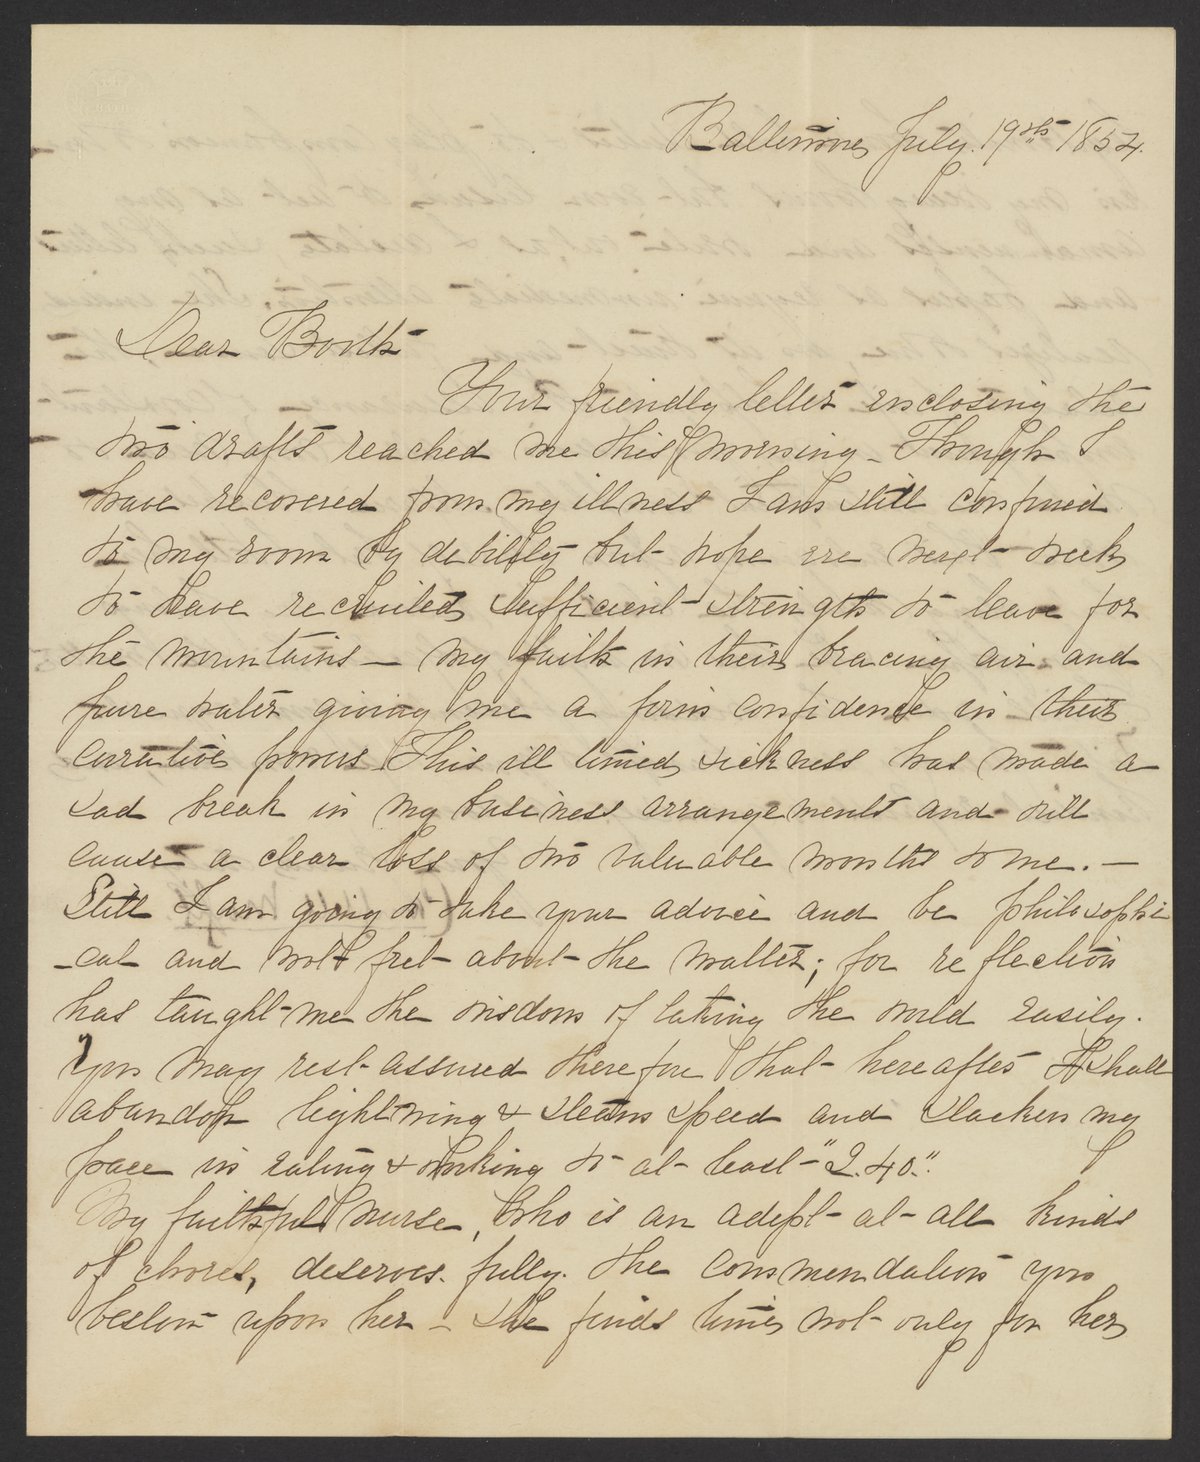 Baltimore July 19th 1854.
Dear Booth
Your friendly letter enclosing the
two drafts reached me this morning - Though I
have recovered from my illness I am still confined
to my room by debility but hope ere next week
to have recruited sufficient strength to leave for
the mountains — my faith in their bracing air and
pure water giving me a firm confidence in their
curative powers. This ill timed sickness has made a
sad break in my business arrangements and will
cause a clear loss of two valuable months to me. —
Still I am going to take your advice and be philosophi
-cal and not fret about the matter; for reflection
has taught me the wisdom of taking the world easily.
You may rest assured therefore that hereafter I shall
abandon lightning & steam speed and slacken my
pace in eating & drinking to at least "2.40".
My faithful nurse, who is an adept at all kinds
of chores, deserves fully the commendation you
bestow upon her - she finds time not only for her